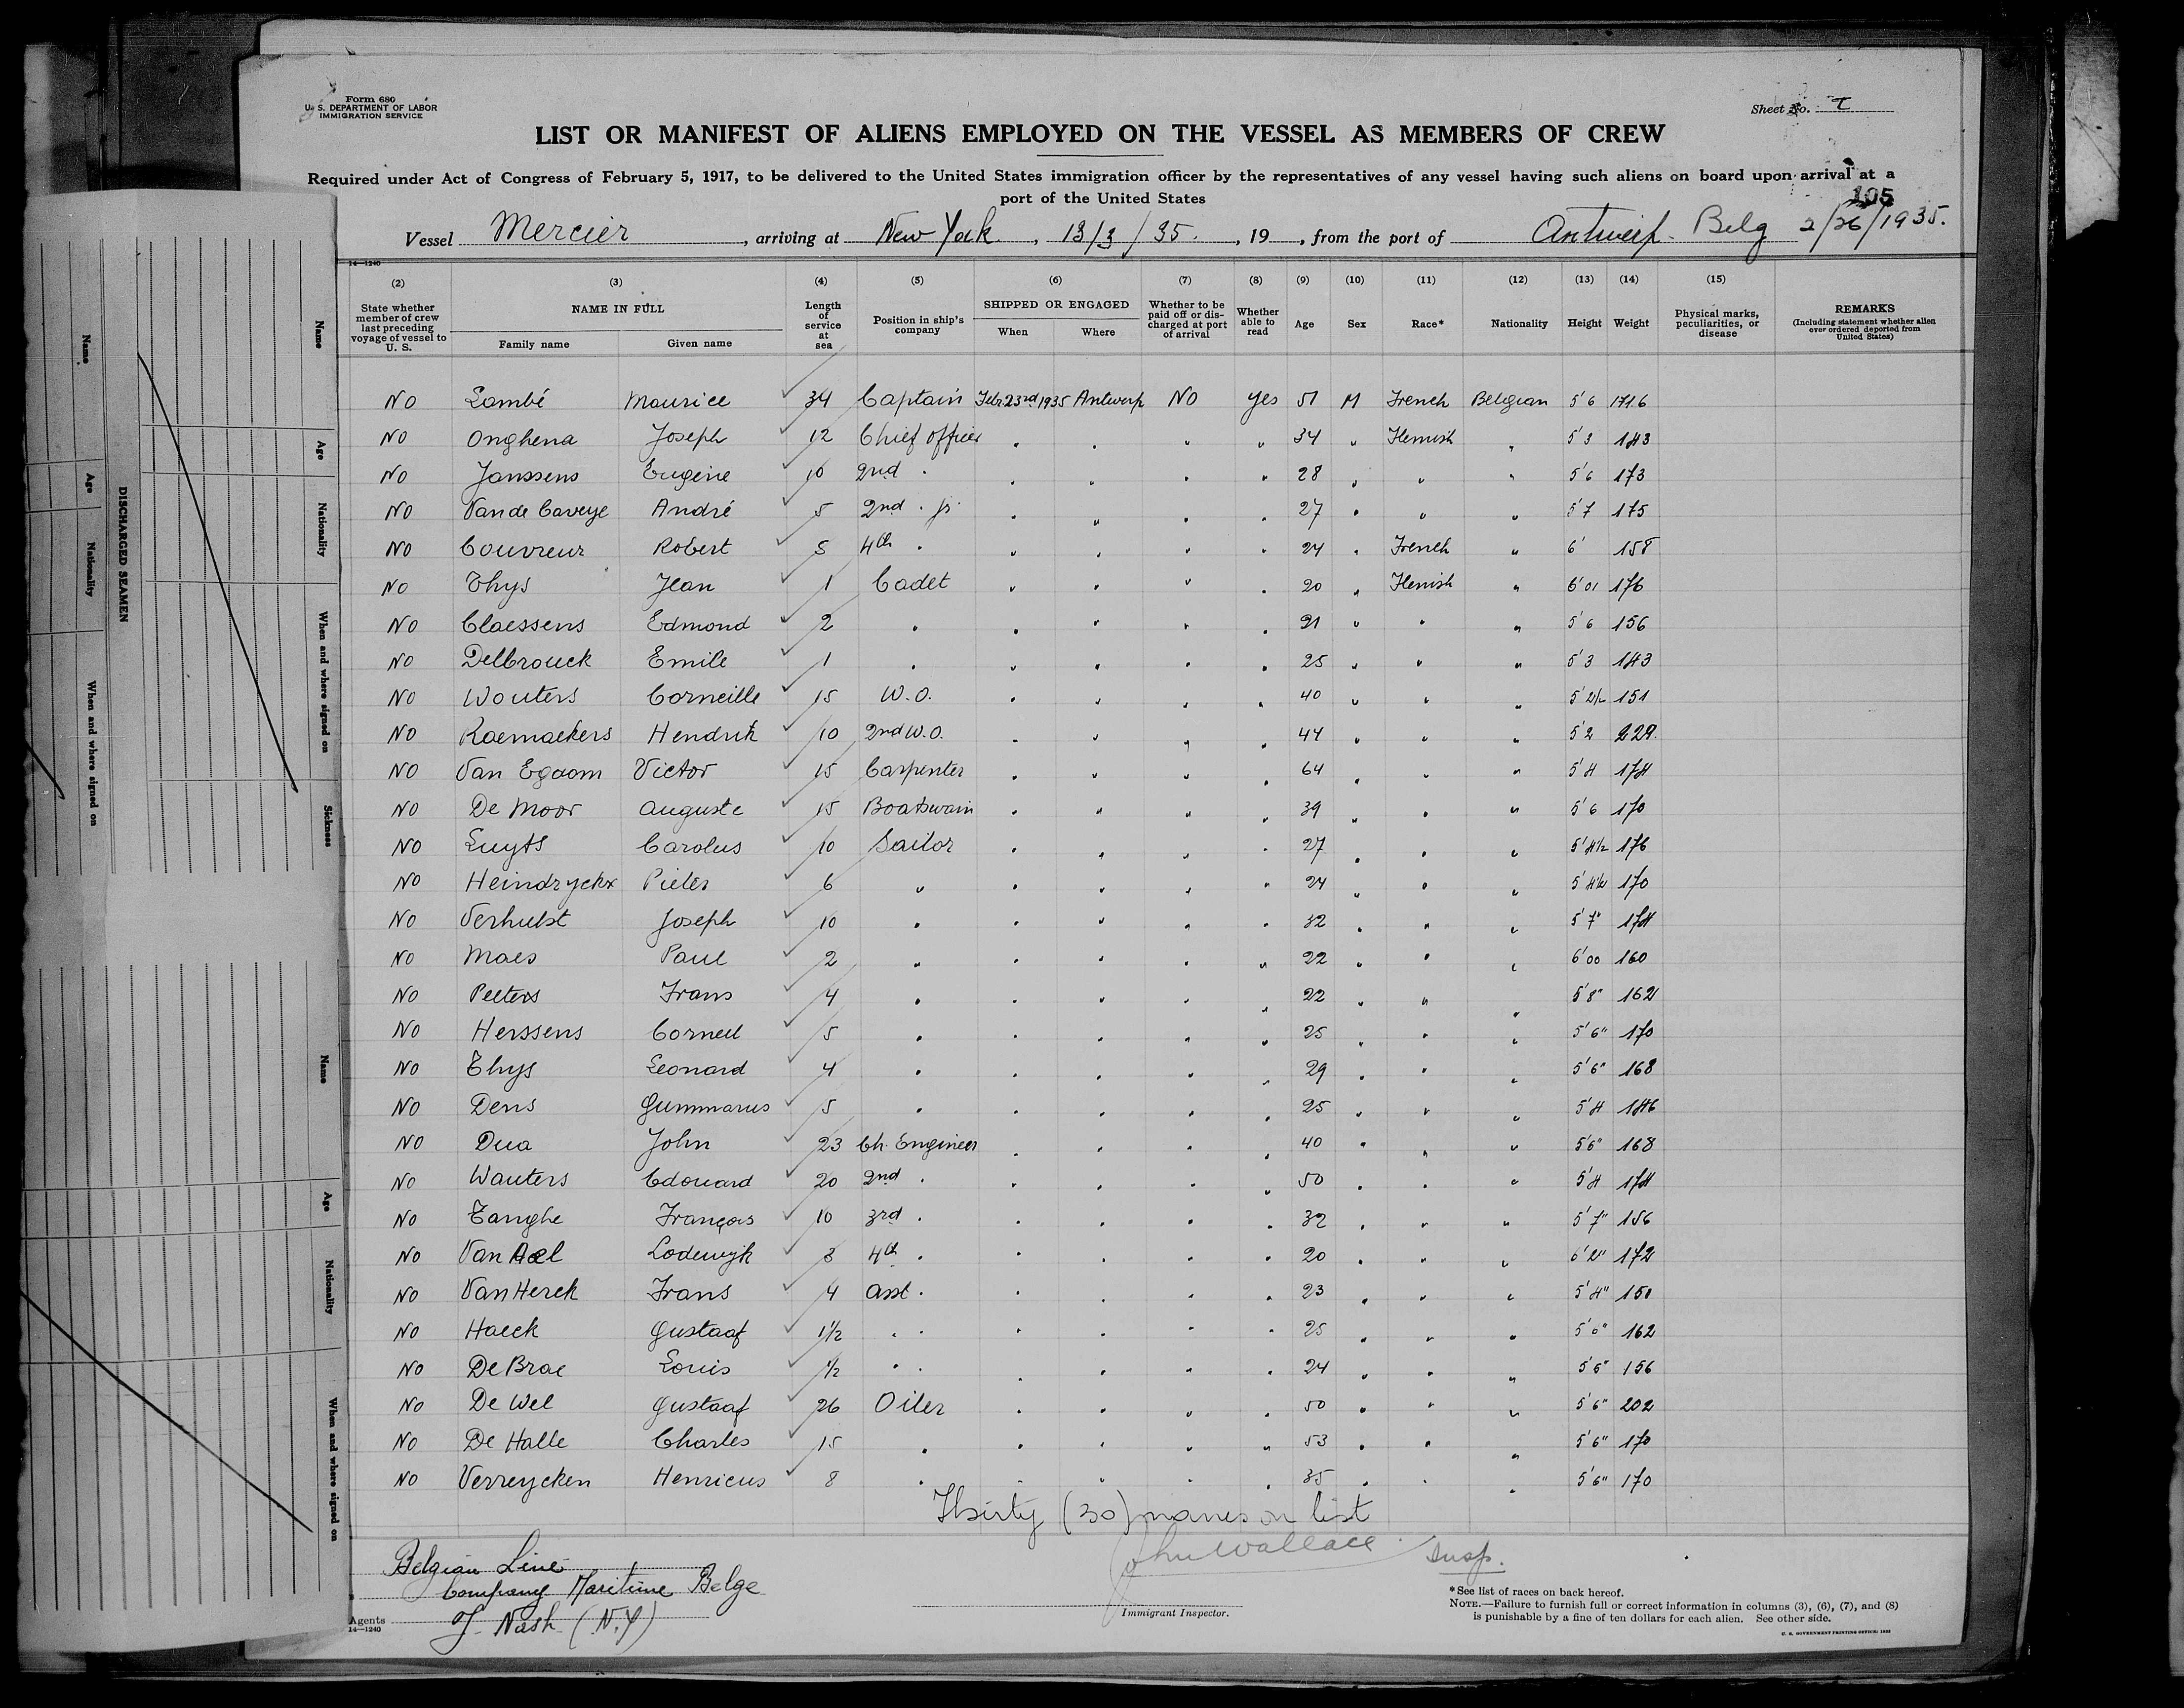 Form 680
U. S. DEPARTMENT OF LABOR
IMMIGRATION SERVICE
Sheet No.
LIST OR MANIFEST OF ALIENS EMPLOYED ON THE VESSEL AS MEMBERS OF CREW
Required under Act of Congress of February 5, 1917, to be delivered to the United States immigration officer by the representatives of any vessel having such aliens on board upon arrival at a
port of the United States
105
Vessel Mercier, arriving at New York, 13/3/35., 19, from the port of Antwerp Belg 2/26/1935.
14—1240
(2) (3) (4) (5) (6) (7) (8) (9) (10) (11) (12) (13) (14) (15)
State whether member of crew last preceding voyage of vessel to U. S. NAME IN FULL Family name Given name Length of service at sea Position in ship's company SHIPPED OR ENGAGED When Where Whether to be paid off or discharged at port of arrival Whether able to read Age Sex Race* Nationality Height Weight Physical marks, peculiarities, or disease REMARKS (Including statement whether alien ever ordered deported from United States)
NO Lombé Maurice 34 Captain Feb. 23rd 1935 Antwerp NO Yes 51 M French Belgian 5'6 171.6
NO Onghena Joseph 12 Chief officer " " " " 34 " Flemish " 5'3 143
NO Janssens Eugène 10 2nd " " " " " 28 " " " 5'6 173
NO Van de Caveye André 5 2nd " jr. " " " " 27 " " " 5'7 175
NO Couvreur Robert 5 4th " " " " " 24 " French " 6' 158
NO Thys Jean 1 Cadet " " " " 20 " Flemish " 6'01 176
NO Claessens Edmond 2 " " " " " 21 " " " 5'6 156
NO Delbrouck Emile 1 " " " " " 25 " " " 5'3 143
NO Wouters Corneille 15 W.O. " " " " 40 " " " 5'2½ 151
NO Raemaekers Hendrik 10 2nd W.O. " " " " 44 " " " 5'2 229.
NO Van Egdom Victor 15 Carpenter " " " " 64 " " " 5'4 174
NO De Moor Auguste 15 Boatswain " " " " 39 " " " 5'6 170
NO Luyts Carolus 10 Sailor " " " " 27 " " " 5'4½ 176
NO Heindryckx Pieter 6 " " " " " 24 " " " 5'4½ 170
NO Verhulst Joseph 10 " " " " " 32 " " " 5'7" 174
NO Maes Paul 2 " " " " " 22 " " " 6'00 160
NO Peeters Frans 4 " " " " " 22 " " " 5'8" 162
NO Herssens Corneel 5 " " " " " 25 " " " 5'6" 170
NO Thys Leonard 4 " " " " " 29 " " " 5'6" 168
NO Dens Gummarus 5 " " " " " 25 " " " 5'4 146
NO Dua John 23 Ch. Engineer " " " " 40 " " " 5'6" 168
NO Wauters Edouard 20 2nd " " " " " 50 " " " 5'4 174
NO Tanghe François 10 3rd " " " " " 32 " " " 5'7" 156
NO Van Ael Lodewyk 3 4th " " " " " 20 " " " 6'2" 172
NO Van Herck Frans 4 Asst " " " " " 23 " " " 5'4" 150
NO Haeck Gustaaf 1½ " " " " " " 25 " " " 5'0" 162
NO De Brae Louis ½ " " " " " " 24 " " " 5'6" 156
NO De Wel Gustaaf 26 Oiler " " " " 50 " " " 5'6" 202
NO De Halle Charles 15 " " " " " 53 " " " 5'6" 170
NO Verreycken Henricus 8 " " " " " 35 " " " 5'6" 170
Thirty (30) names on list
John Wallace Insp.
Immigrant Inspector.
Belgian Line
Company Maritime Belge
Agents
J. Nash (N.Y)
14—1240
*See list of races on back hereof.
NOTE.—Failure to furnish full or correct information in columns (3), (6), (7), and (8)
is punishable by a fine of ten dollars for each alien. See other side.
U. S. GOVERNMENT PRINTING OFFICE: 1932
DISCHARGED SEAMEN
Name
Age
Nationality
When and where signed on
Name
Age
Nationality
When and where signed on
Sickness
Name
Age
Nationality
When and where signed on